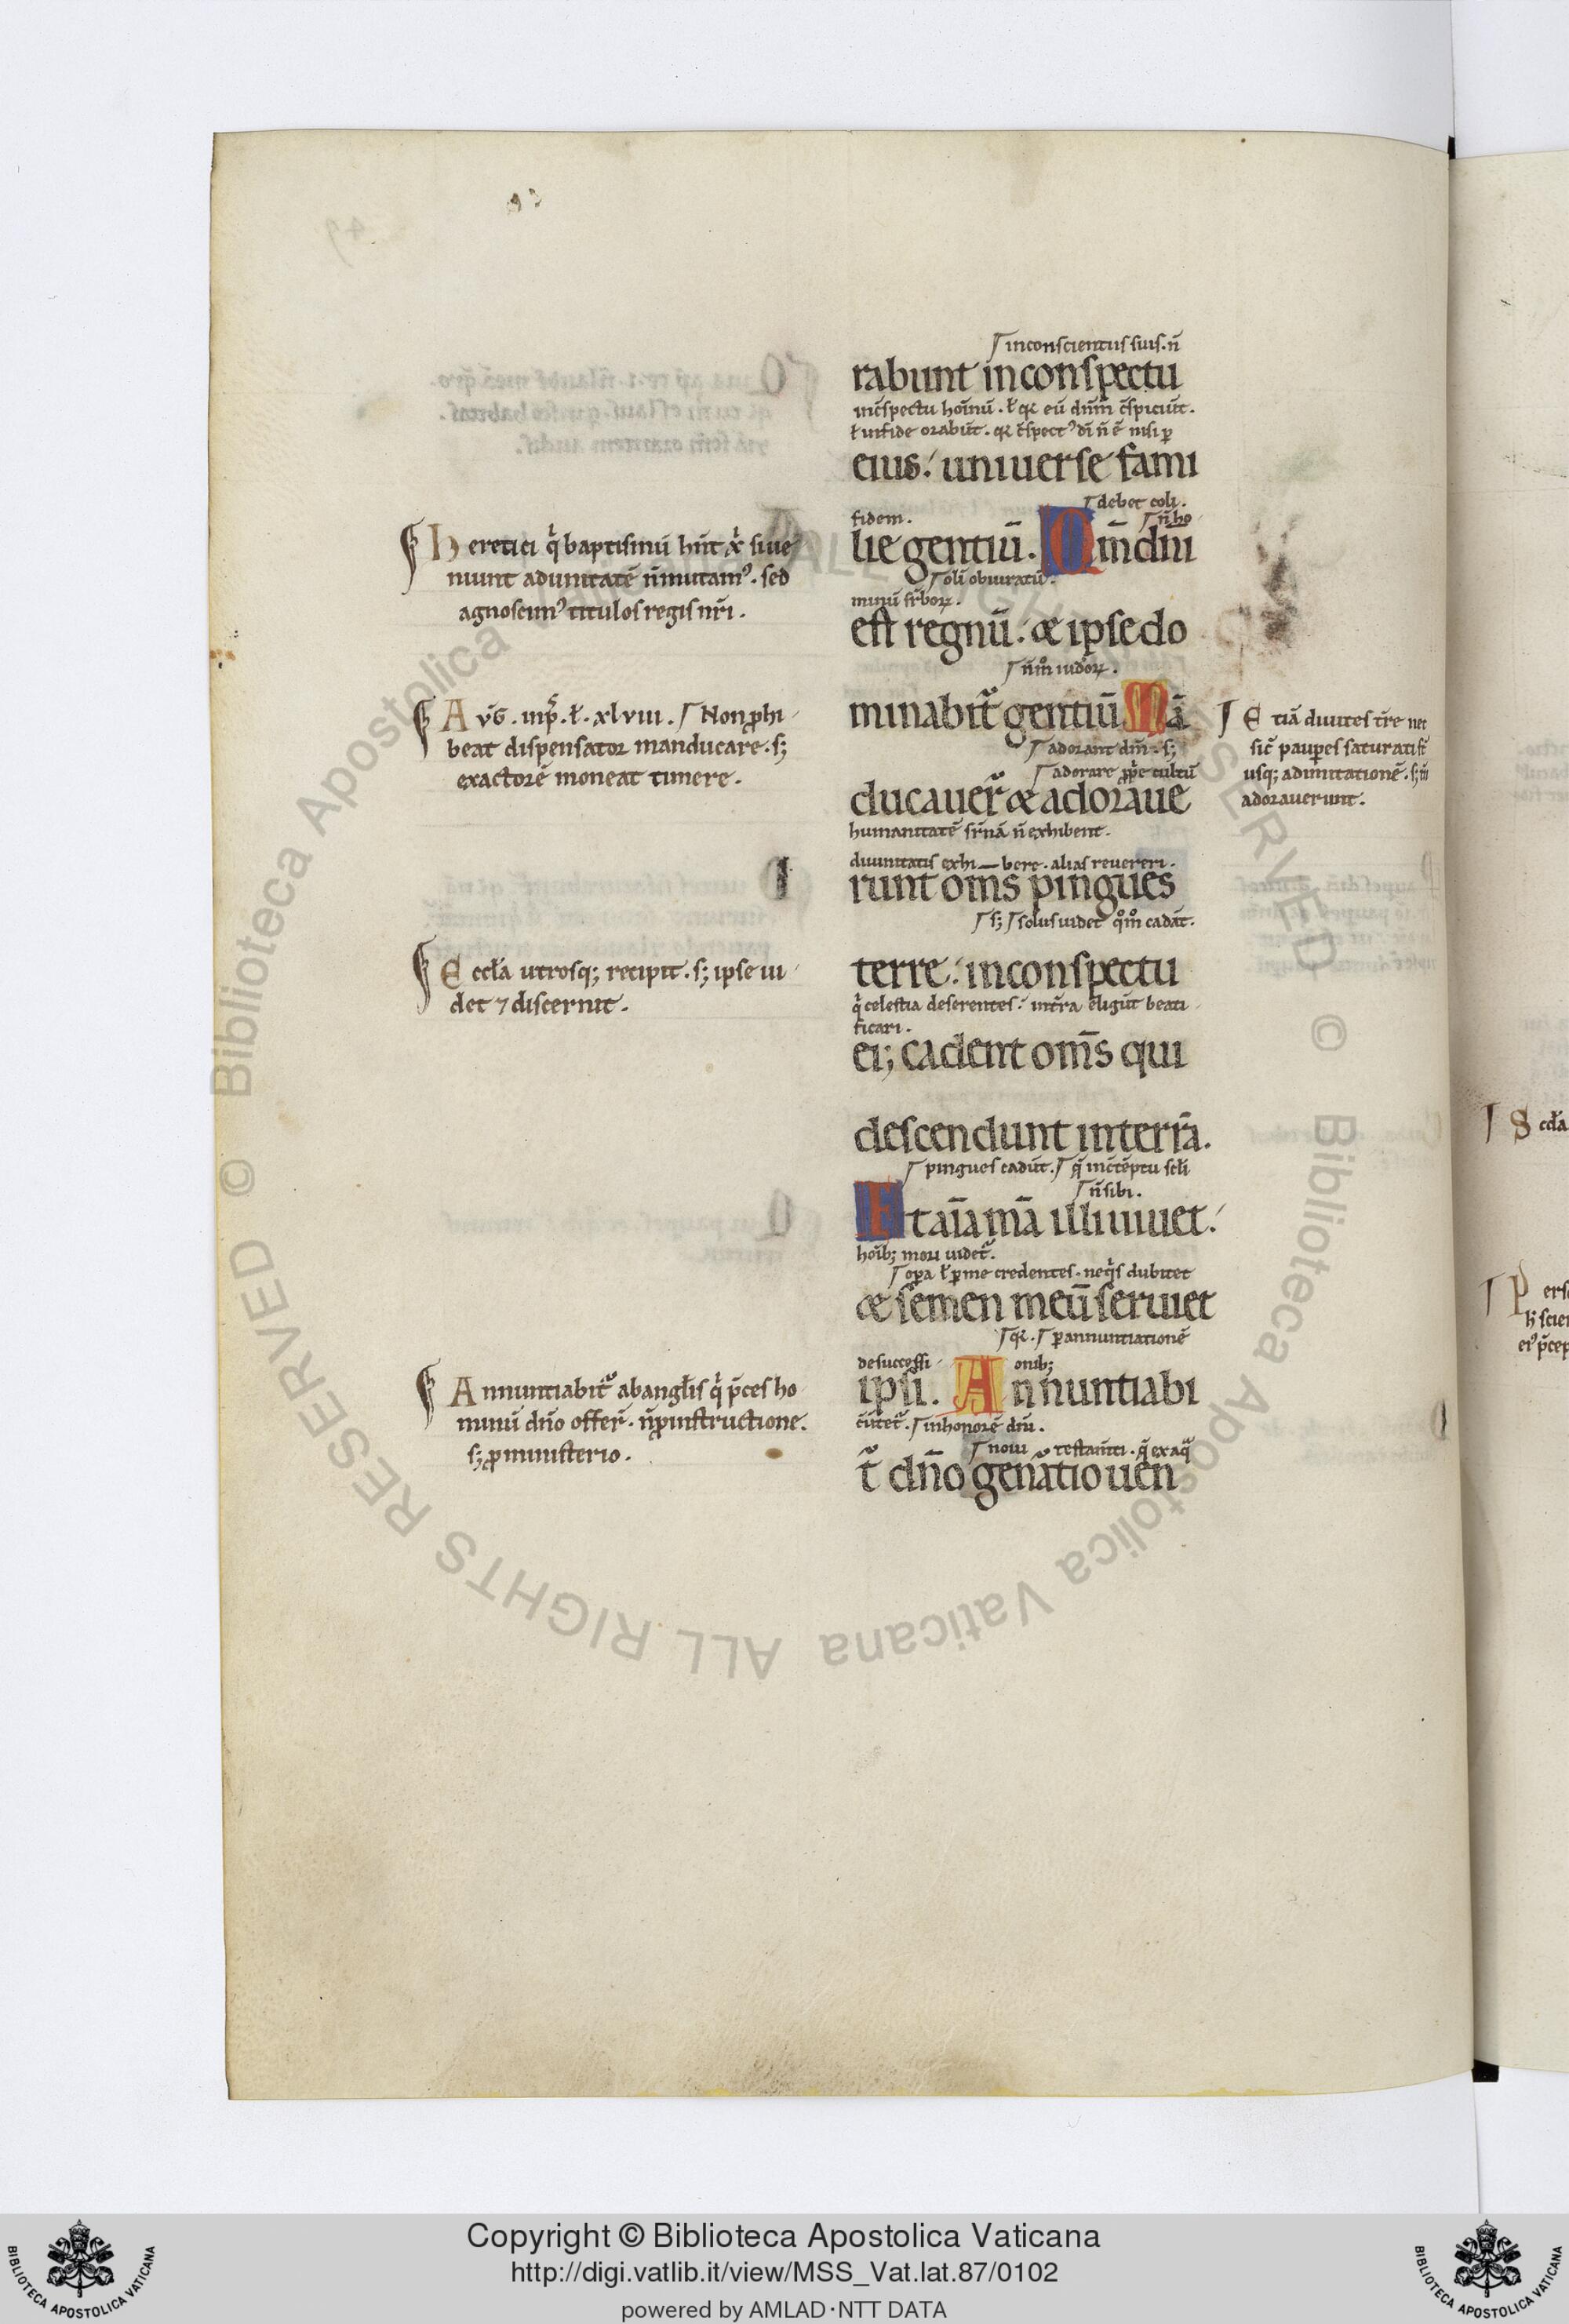 ⌈inconscientiis suis. n̄
rabunt inconspectu
inc̄spectu hoīnū. ł qꝛ eū dn̄m̄ c̄spiciūt.
ł uifide orabūt. qꝛ c̄spectꝰ dī n̄ ē nisi ꝑ
eius: uniuerse fami
⌈debet coli.
fidem. ⌈n̄ ho
lie gentiū. Qm̄ dn̄i
⌈olī obiuratū.
minū
est regnū: & ipse do
minabit̃ gentiū Mā
⌈adorant dm̄. sꝫ
⌈adorare ꝓpͥe cultū
ducauer̃ & adoraue
humanitatē n̄ exhibent.
diuinitatis exhi—bere. alias reuereri.
runt om̄s pingues
⌈sꝫ ⌈solus uidet qͦm̊ cadāt.
terre: inconspectu
qͥ celestia deserentes: int̄ra eligūt beati
ficari.
ei; cadent om̄s qui
descendunt interrā.
⌈pingues cadūt. ⌈q̄ inc̄tēptu scłi
⌈n̄ sibi.
Et aīa mā illi uiuet:
hoīb; mori uidet̃.
⌈oꝑa ł ꝑ me credentes. neqͥs dubitet
& semen meū seruiet
⌈qꝛ. ⌈ꝑ annuntiationē
desuccessi onib;
ipsi. Annuntiabi
⌈inhonorē dn̄i.
⌈noui testam̄ti. q̄ exaqͣ
t̃ dn̄o gen̄atio uen
Heretici qͥ baptismū hn̄t xͥ siue
niunt adunitatē n̄ mutamꝰ. sed
agnoscimꝰ titulos regis nr̄i.
Avḡ. inp̄. ł. xlviii. ⌈Non ꝓhi
beat dispensator manducare. sꝫ
exactorē moneat timere.
Eccła utrosq; recipit. sꝫ ipse ui
det ⁊ discernit.
Annuntiabit̃ abangłis qͥ p̄ces ho
minū dn̄o offer̄. n̄ ꝓ instructione.
sꝫ ꝓ ministerio.
Etiā diuites t̄re nec
sic̄ pauꝑes saturati st̄
usq; adimitationē. sꝫ tn̄
adorauerunt.
Copyright © Biblioteca Apostolica Vaticana
http://digi.vatlib.it/view/MSS_Vat.lat.87/0102
powered by AMLAD·NTT DATA
BIBLIOTECA APOSTOLICA VATICANA
BIBLIOTECA APOSTOLICA VATICANA
© Biblioteca Apostolica Vaticana ALL RIGHTS RESERVED